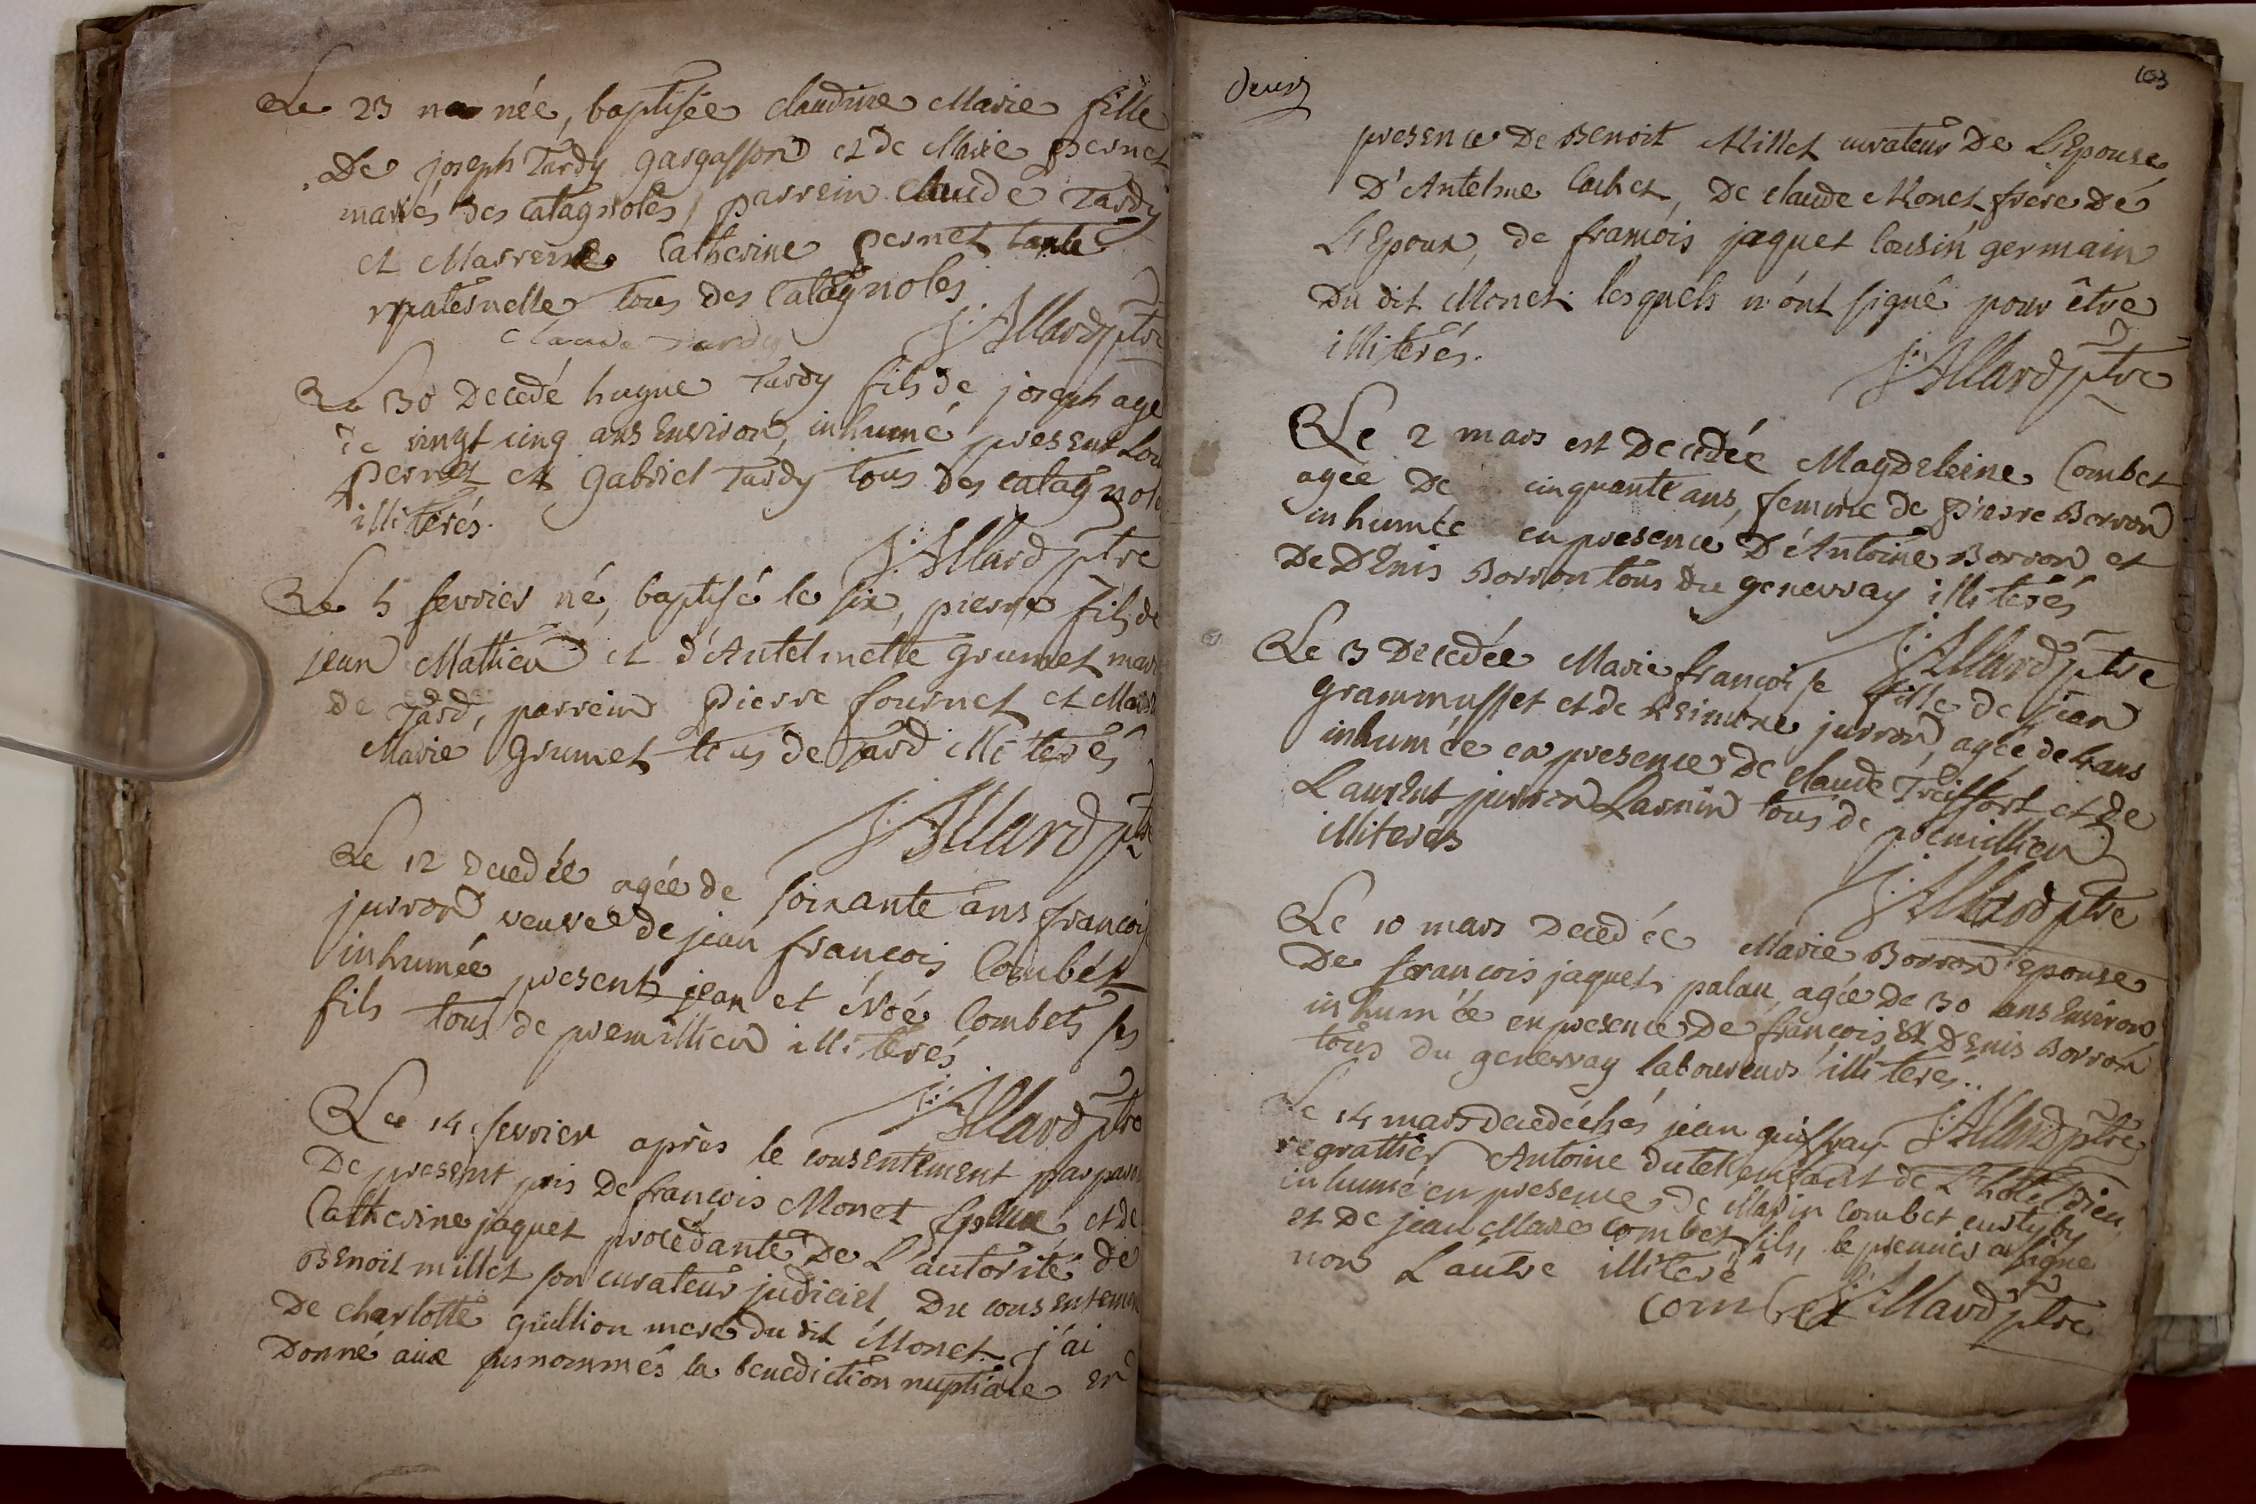 Le 23 née, baptisée claudine Marie fille
De joseph Tardy gargasson et de Marie pernet
mariés des catagnoles, parrein claude Tardy
et Marreine Catherine pernet tante
maternelle tous des Catagnoles
claude tardy J: Allard ptre
Le 30 Decedé hugue Tardy fils de joseph agé
de vingt cinq ans Environ, inhumé present
pernet et gabriel Tardy tous des catagnol
illiterés.
J: Allard ptre
Le 5 fevrier né, baptisé le six, pierre fils de
jean Mathieu et d'Antelmette grumet mar
de Tard, parrein Pierre fournet et Marr
Marie grumet tous de Tard illiterés
J: Allard ptre
Le 12 Decedée agée de soixante ans françoise
jurron veuve de jean françois Combet
inhumée present jean et Noé Combets ses
fils tous de premillieu illiterés
J: Allard ptre
Le 14 fevrier après le consentement par parol
De present pris De françois Monet Epoux et de
Catherine jaquet procedante De L'autorité de
Benoit millet son curateur judiciel Du consentement
De charlotte guillion mere du dit Monet. j'ai
Donné aux susnommés la benediction nuptiale en
103
presence De Benoit Millet curateur De L'Epouse
D'Antelme Cachet, De claude Monet frere De
L'Epoux, de françois jaquet Cousin germain
Du dit Monet. lesquels n'ont signé pour être
illiterés.
J: Allard ptre
Le 2 mars est Decedée Magdeleine Combet
agée De cinquante ans, femme de Pierre Borron
inhumée en presence D'Antoine Borron et
De DEnis Borron tous du genevray illiterés
J: Allard ptre
Le 3 Decedée Marie françoise fille de jean
grammusset et de jurron, agée de 4 ans
inhumée en presence De claude Treffort et de
Laurent jurron Larnin tous de premillieu
illiterés
J: Allard ptre
Le 10 mars Decedée Marie Borron epouse
De francois jaquet palau, agée de 30 ans Environ
inhumée en presence De françois et DEnis Borron
tous du genevray laboureurs illiterés..
J: Allard ptre
Le 14 mars decedé chés jean guiffray
regrattier Antoine dutel enfant de L'hotel Dieu
inhumé en presence de Marin Combet
et De jean Marie Combet fils, le premier a signé
non L'autre illiteré
combet J: Allard ptre